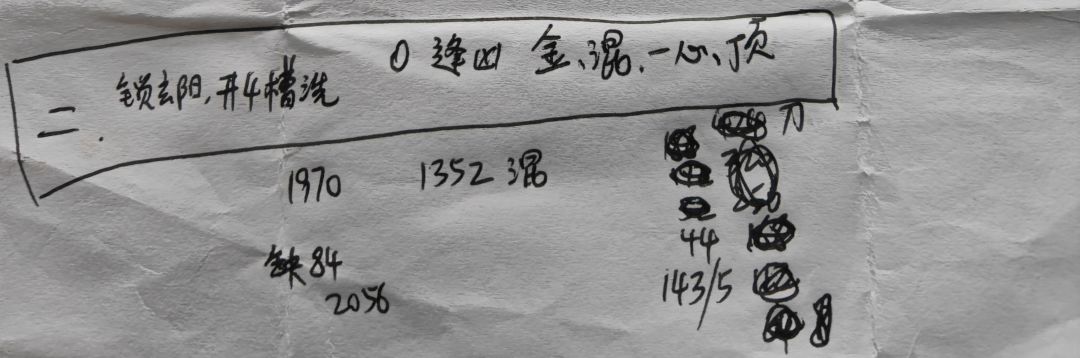 0 逢凶 金、混、一心、顶
二. 锁玄阳,开4槽洗
刀
1970 1352 混
44
缺84 143/5
2056